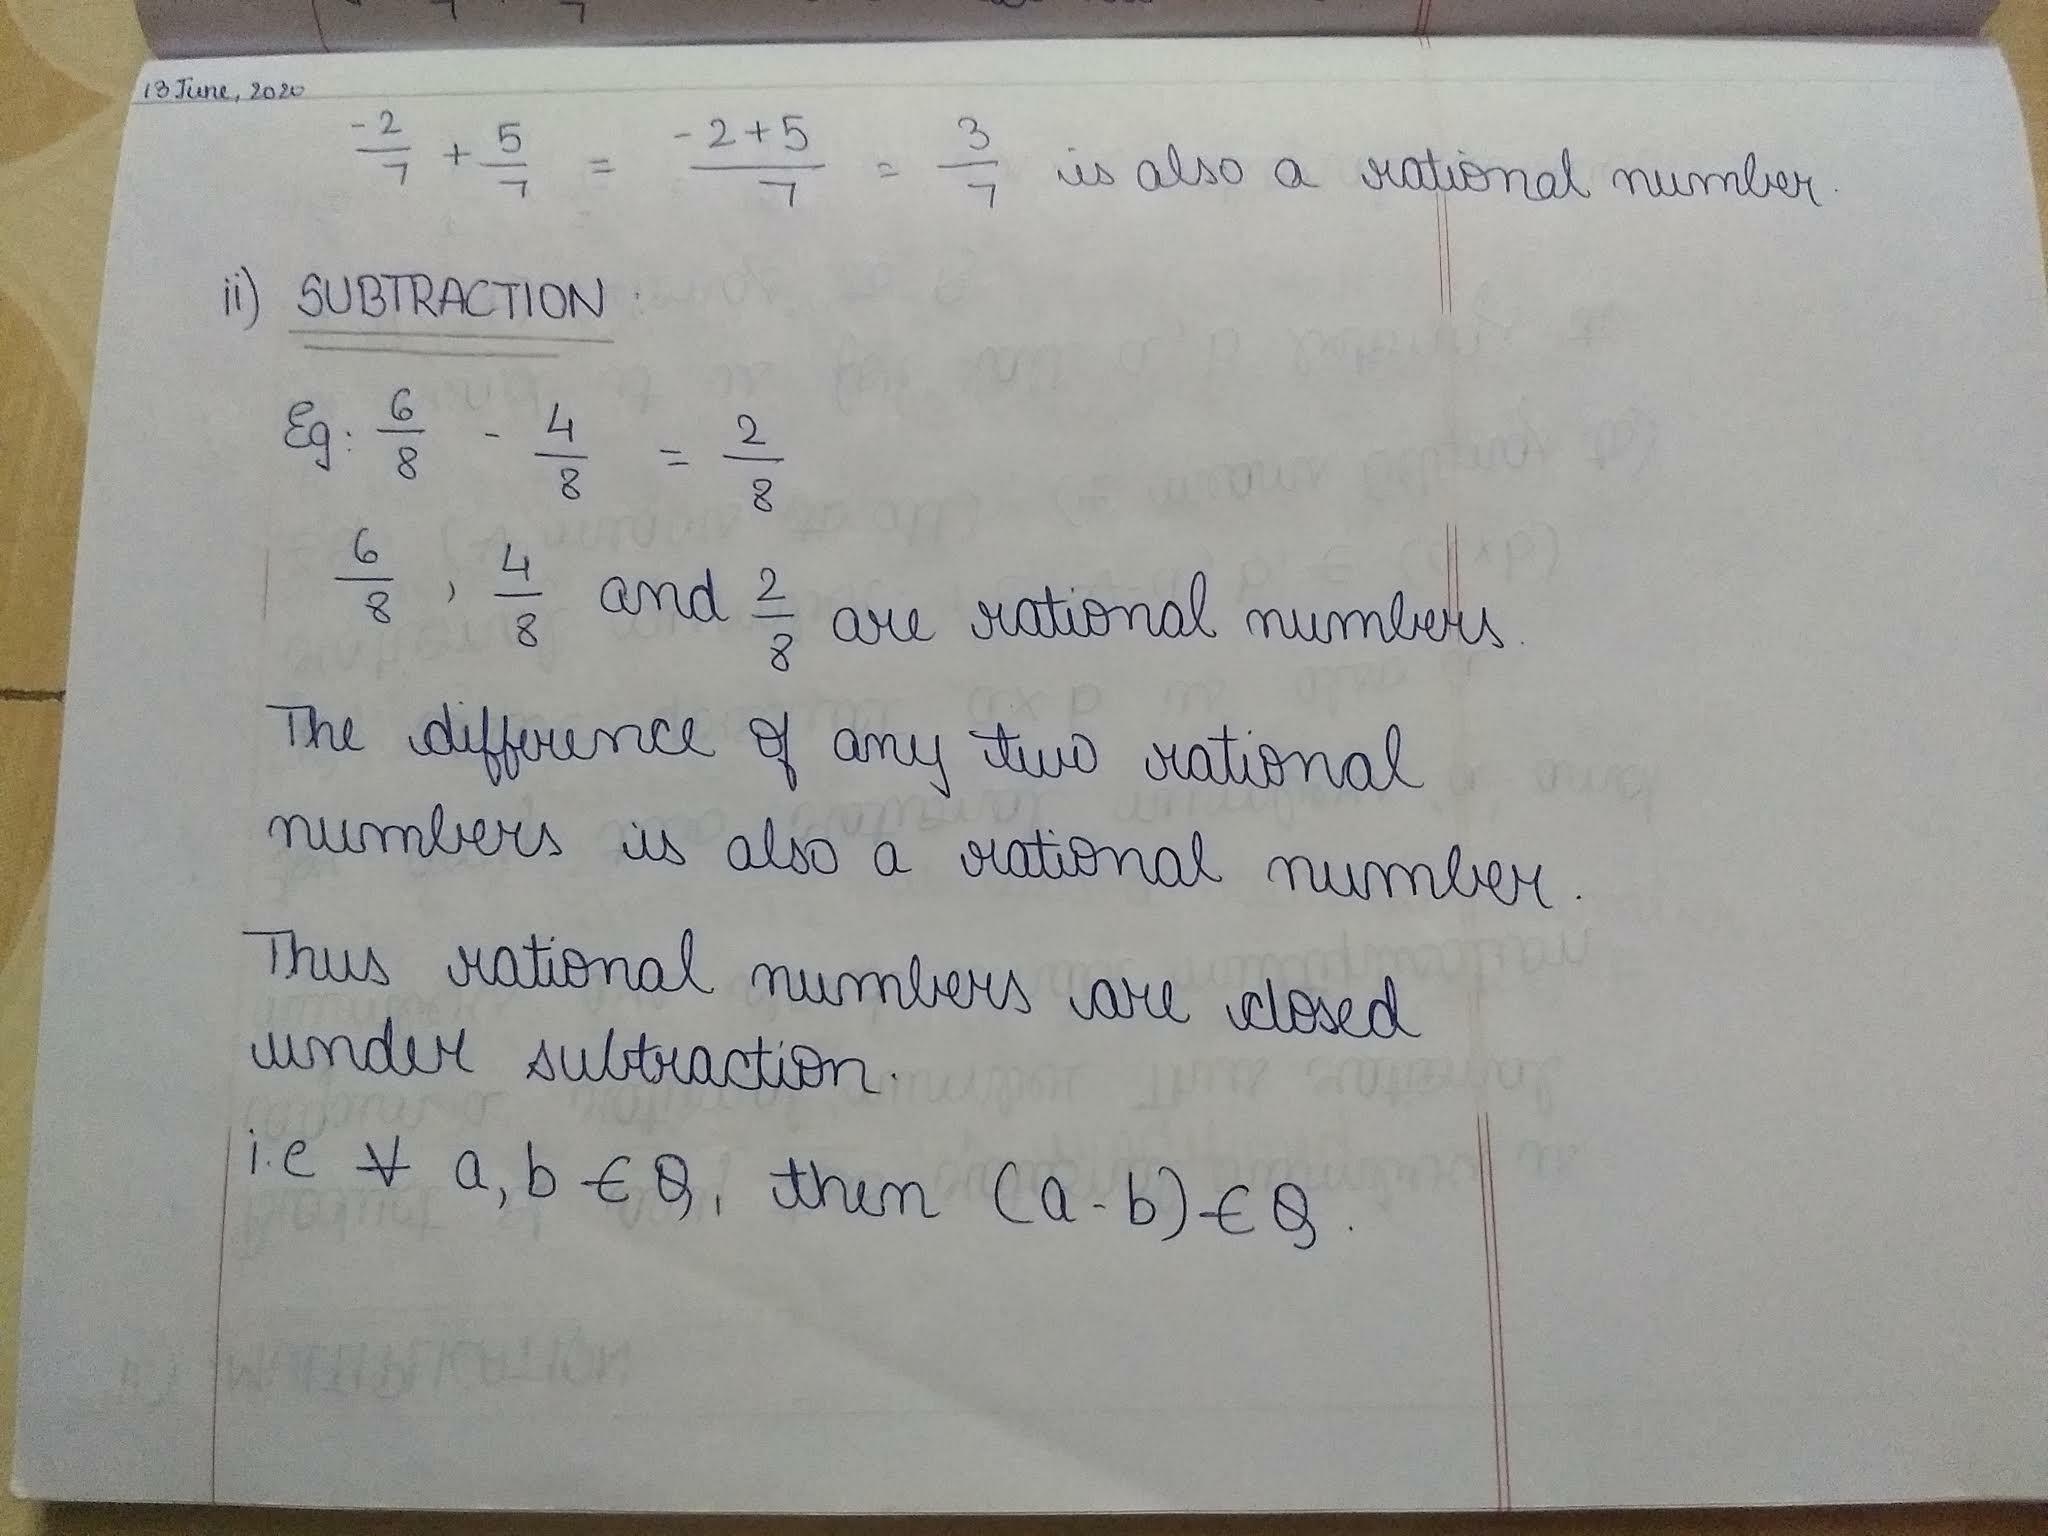 13 June, 2020
-2/7 + 5/7 = -2+5/7 = 3/7 is also a rational number.
ii) SUBTRACTION:
Eg: 6/8 - 4/8 = 2/8
6/8, 4/8 and 2/8 are rational numbers.
The difference of any two rational
numbers is also a rational number.
Thus rational numbers are closed
under subtraction.
i.e ∀ a, b ∈ Q, then (a-b) ∈ Q.